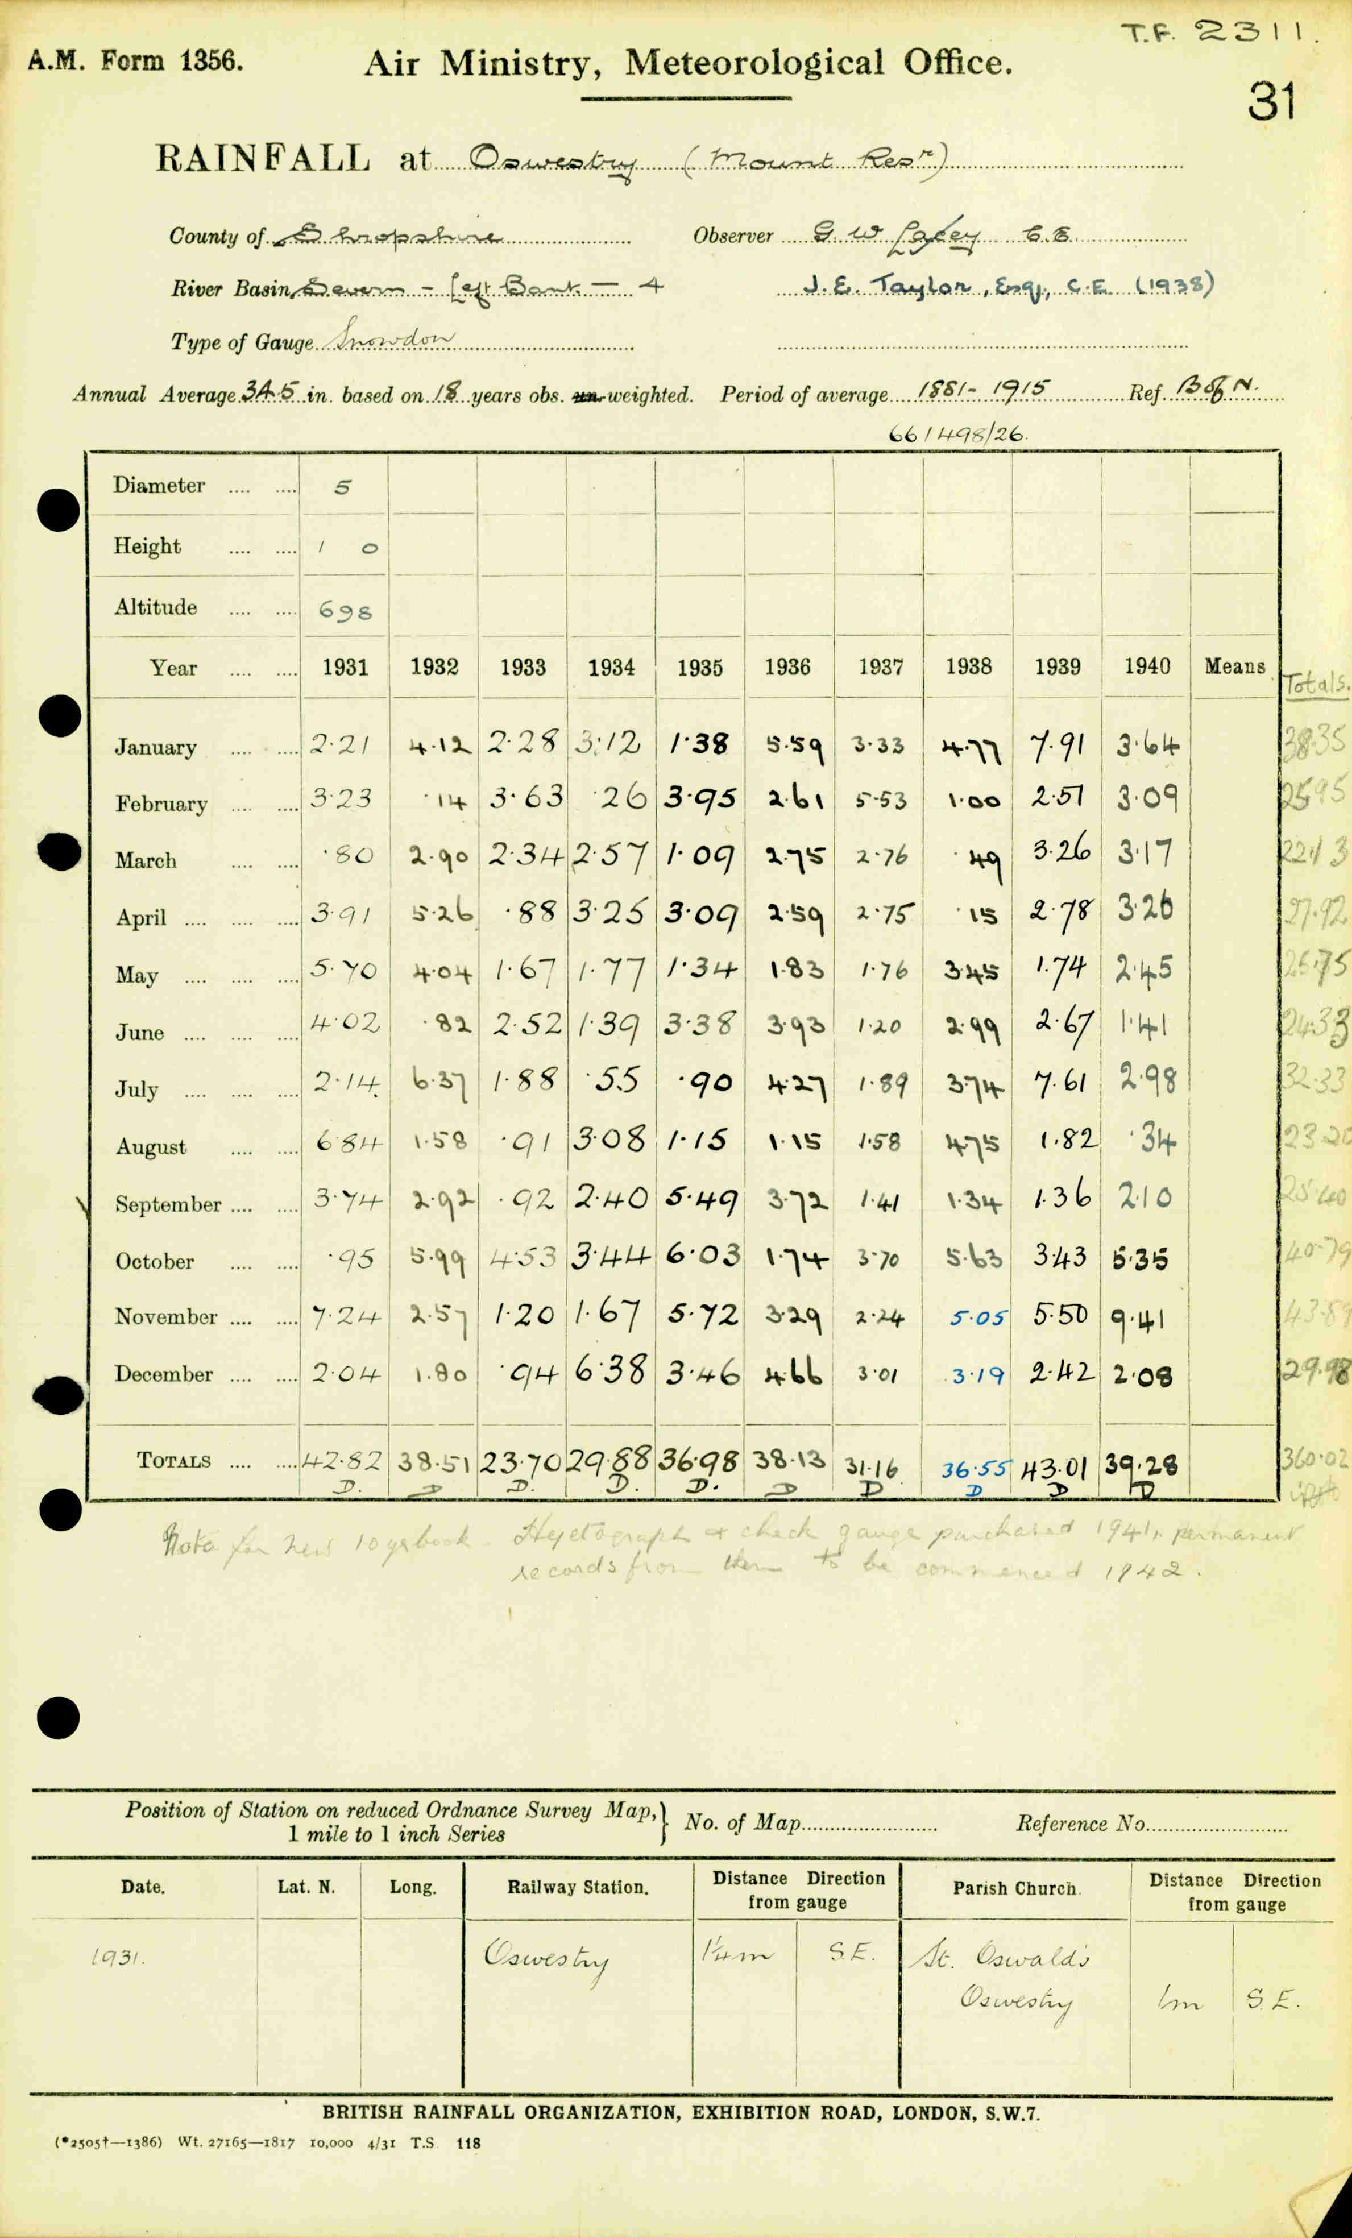 T.F. 2311.
A.M. Form 1356. Air Ministry, Meteorological Office.
31
RAINFALL at Oswestry (Mount Resr)
County of Shropshire Observer G W Lacey C.E.
River Basin Severn - Left Bank - 4 J. E. Taylor, Esq., C.E. (1938)
Type of Gauge Snowdon
Annual Average 34.5 in. based on 18 years obs. un-weighted. Period of average 1881-1915 Ref. B of N.
661498/26.
Diameter .... .... 5
Height .... .... 1 0
Altitude .... .... 698
Year .... .... 1931 1932 1933 1934 1935 1936 1937 1938 1939 1940 Means Totals.
January .... .... 2.21 4.12 2.28 3.12 1.38 5.59 3.33 4.77 7.91 3.64 38.35
February .... .... 3.23 .14 3.63 .26 3.95 2.61 5.53 1.00 2.51 3.09 25.95
March .... .... .80 2.90 2.34 2.57 1.09 2.75 2.76 .49 3.26 3.17 22.13
April .... .... .... 3.91 5.26 .88 3.25 3.09 2.59 2.75 .15 2.78 3.26 27.92
May .... .... .... 5.70 4.04 1.67 1.77 1.34 1.83 1.76 3.45 1.74 2.45 25.75
June .... .... .... 4.02 .82 2.52 1.39 3.38 3.93 1.20 2.99 2.67 1.41 24.33
July .... .... .... 2.14 6.37 1.88 .55 .90 4.27 1.89 3.74 7.61 2.98 32.33
August .... .... 6.84 1.58 .91 3.08 1.15 1.15 1.58 4.75 1.82 .34 23.20
September .... .... 3.74 2.92 .92 2.40 5.49 3.72 1.41 1.34 1.36 2.10 25.40
October .... .... .95 5.99 4.53 3.44 6.03 1.74 3.70 5.63 3.43 5.35 40.79
November .... .... 7.24 2.57 1.20 1.67 5.72 3.29 2.24 5.05 5.50 9.41 43.89
December .... .... 2.04 1.80 .94 6.38 3.46 4.66 3.01 3.19 2.42 2.08 29.98
TOTALS .... .... 42.82 38.51 23.70 29.88 36.98 38.13 31.16 36.55 43.01 39.28 360.02
D. D D. D. D. D D D D D
Note for new 10 yr book. Hyetograph & check gauge purchased 1941, permanent
records from them to be commenced 1942.
Position of Station on reduced Ordnance Survey Map, } No. of Map Reference No.
1 mile to 1 inch Series
Date. Lat. N. Long. Railway Station. Distance Direction from gauge Parish Church. Distance Direction from gauge
1931. Oswestry 1¼m S.E. St. Oswald's
Oswestry 1m S.E.
BRITISH RAINFALL ORGANIZATION, EXHIBITION ROAD, LONDON, S.W.7.
(*2505†—1386) Wt. 27165—1817 10,000 4/31 T.S. 118